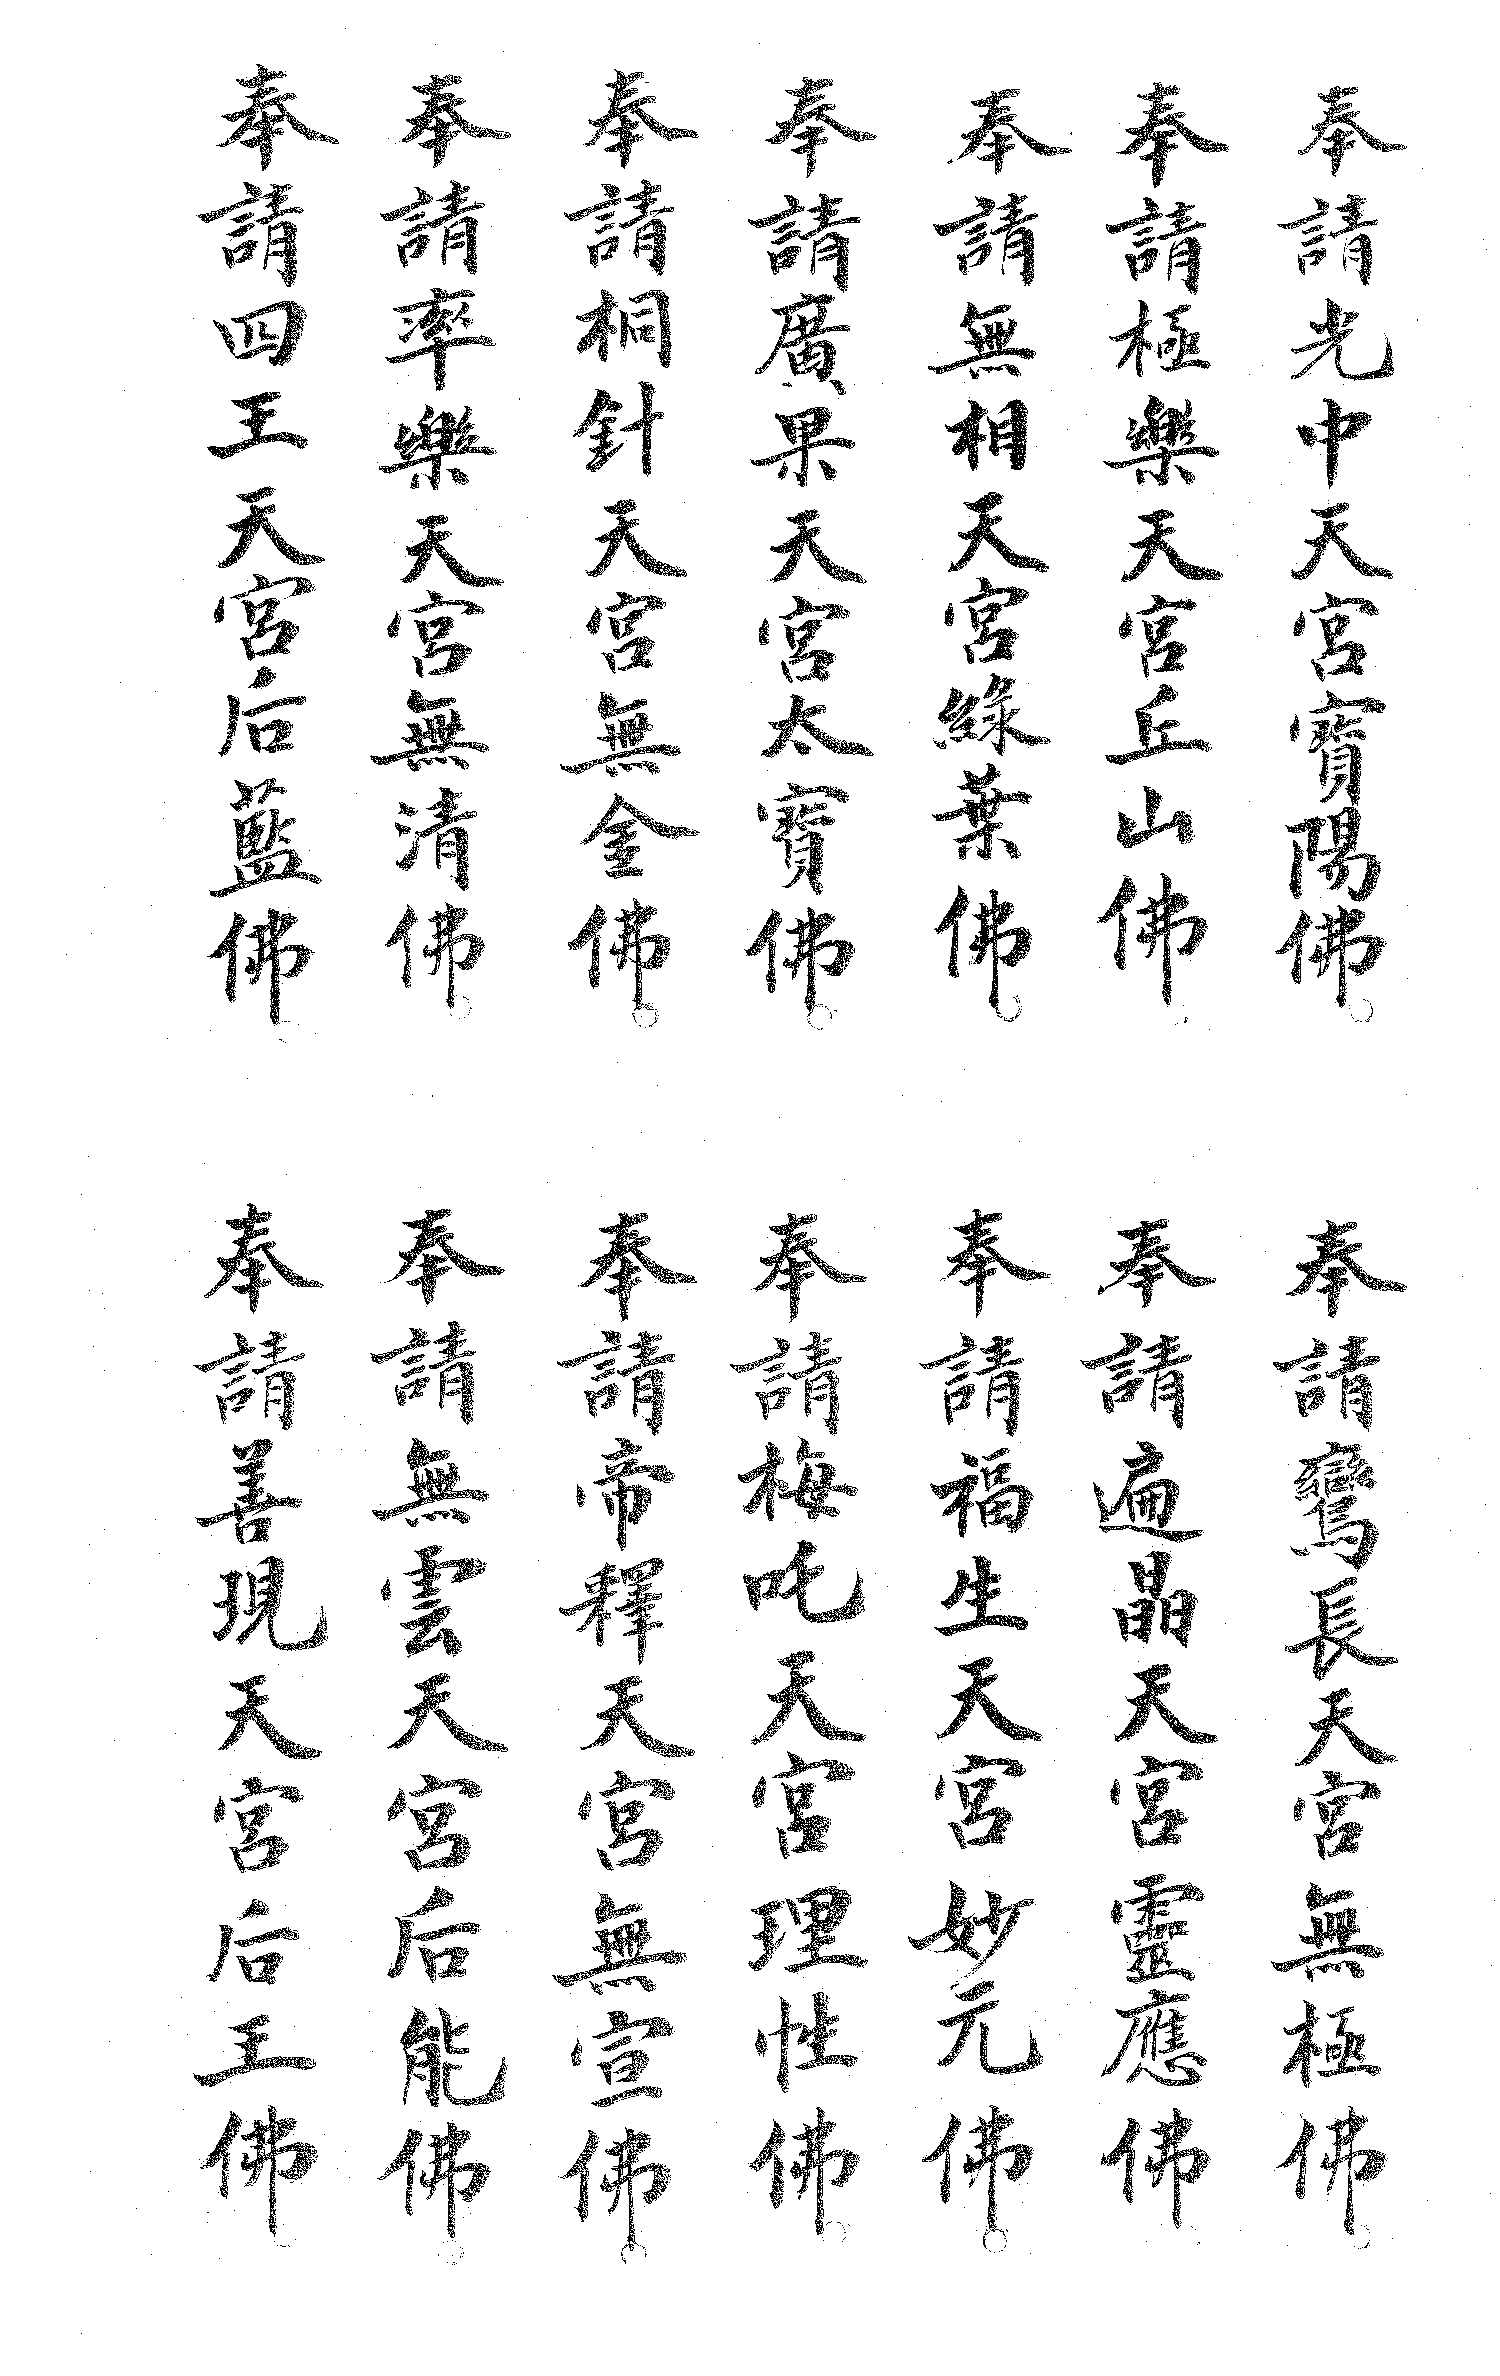 奉請光中天宮寶陽佛
奉請極樂天宮丘山佛
奉請無相天宮綠葉佛
奉請廣果天宮太寶佛
奉請桐針天宮無金佛
奉請率樂天宮無清佛
奉請四王天宮后藍佛
奉請鸞長天宮無極佛
奉請遍晶天宮靈應佛
奉請福生天宮妙元佛
奉請梅吒天宮理性佛
奉請帝釋天宮無宣佛
奉請無雲天宮后能佛
奉請善現天宮后王佛